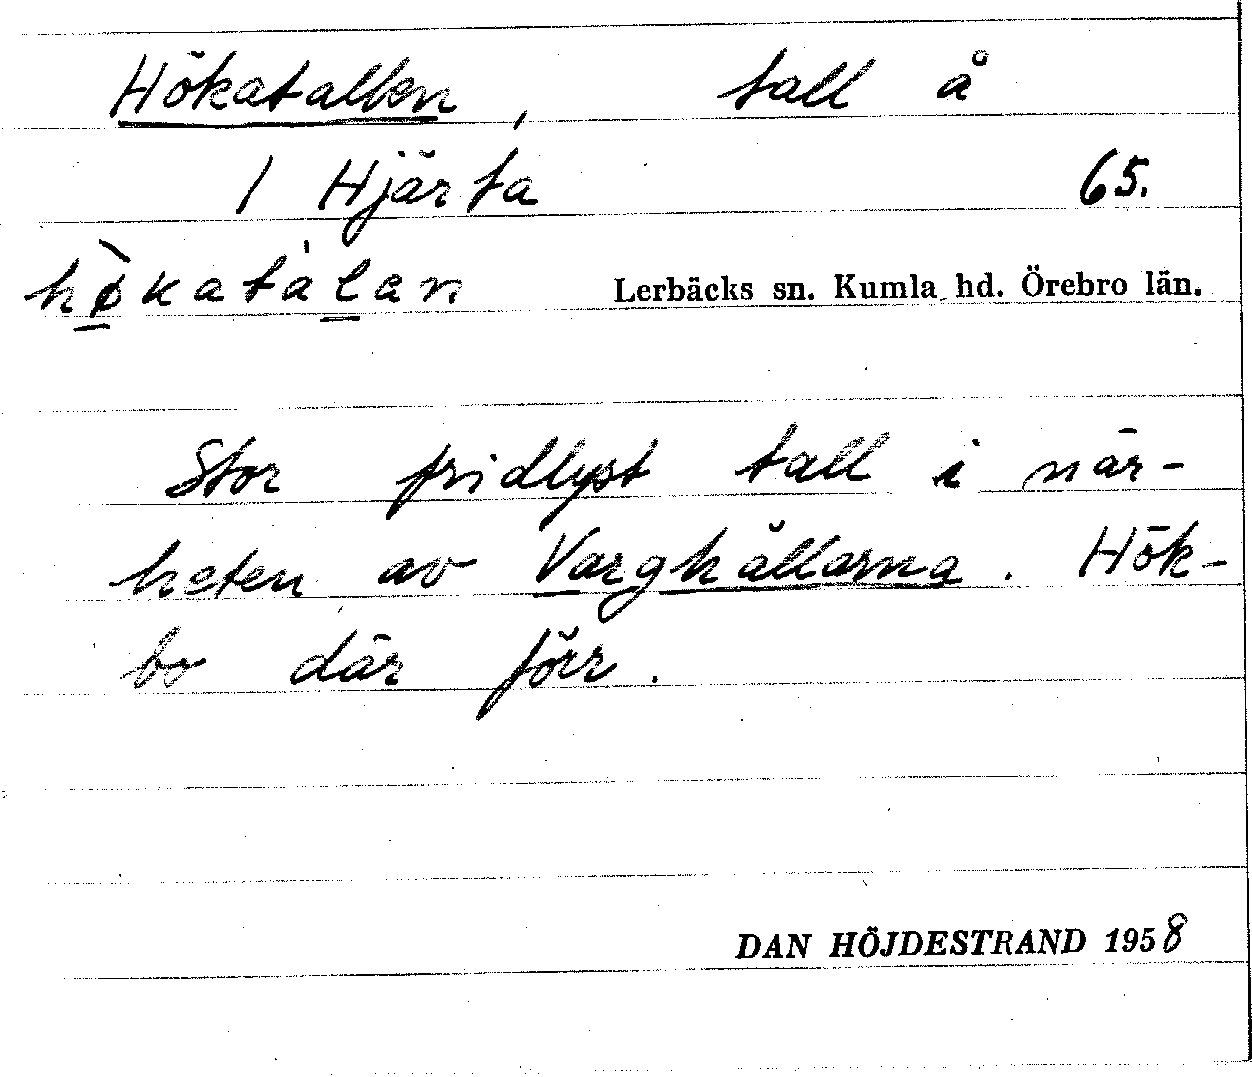 Hökatallen, tall å
1 Hjärta 65.
hø̀katàlan Lerbäcks sn. Kumla hd. Örebro län.
Stor fridlyst tall i när-
heten av Varghällarna. Hök-
bo där förr.
DAN HÖJDESTRAND 1958